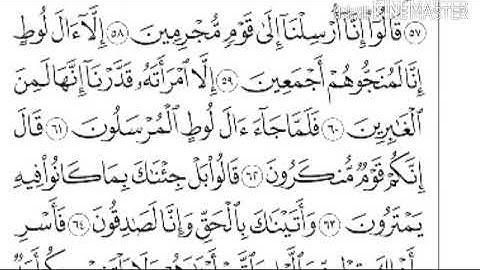 KINEMASTER
٥٧ قَالُوٓا۟ إِنَّآ أُرْسِلْنَآ إِلَىٰ قَوْمٍ مُّجْرِمِينَ ٥٨ إِلَّآ ءَالَ لُوطٍ
إِنَّا لَمُنَجُّوهُمْ أَجْمَعِينَ ٥٩ إِلَّا ٱمْرَأَتَهُۥ قَدَّرْنَآ إِنَّهَا لَمِنَ
ٱلْغَـٰبِرِينَ ٦٠ فَلَمَّا جَآءَ ءَالَ لُوطٍ ٱلْمُرْسَلُونَ ٦١ قَالَ
إِنَّكُمْ قَوْمٌ مُّنكَرُونَ ٦٢ قَالُوا۟ بَلْ جِئْنَـٰكَ بِمَا كَانُوا۟ فِيهِ
يَمْتَرُونَ ٦٣ وَأَتَيْنَـٰكَ بِٱلْحَقِّ وَإِنَّا لَصَـٰدِقُونَ ٦٤ فَأَسْرِ